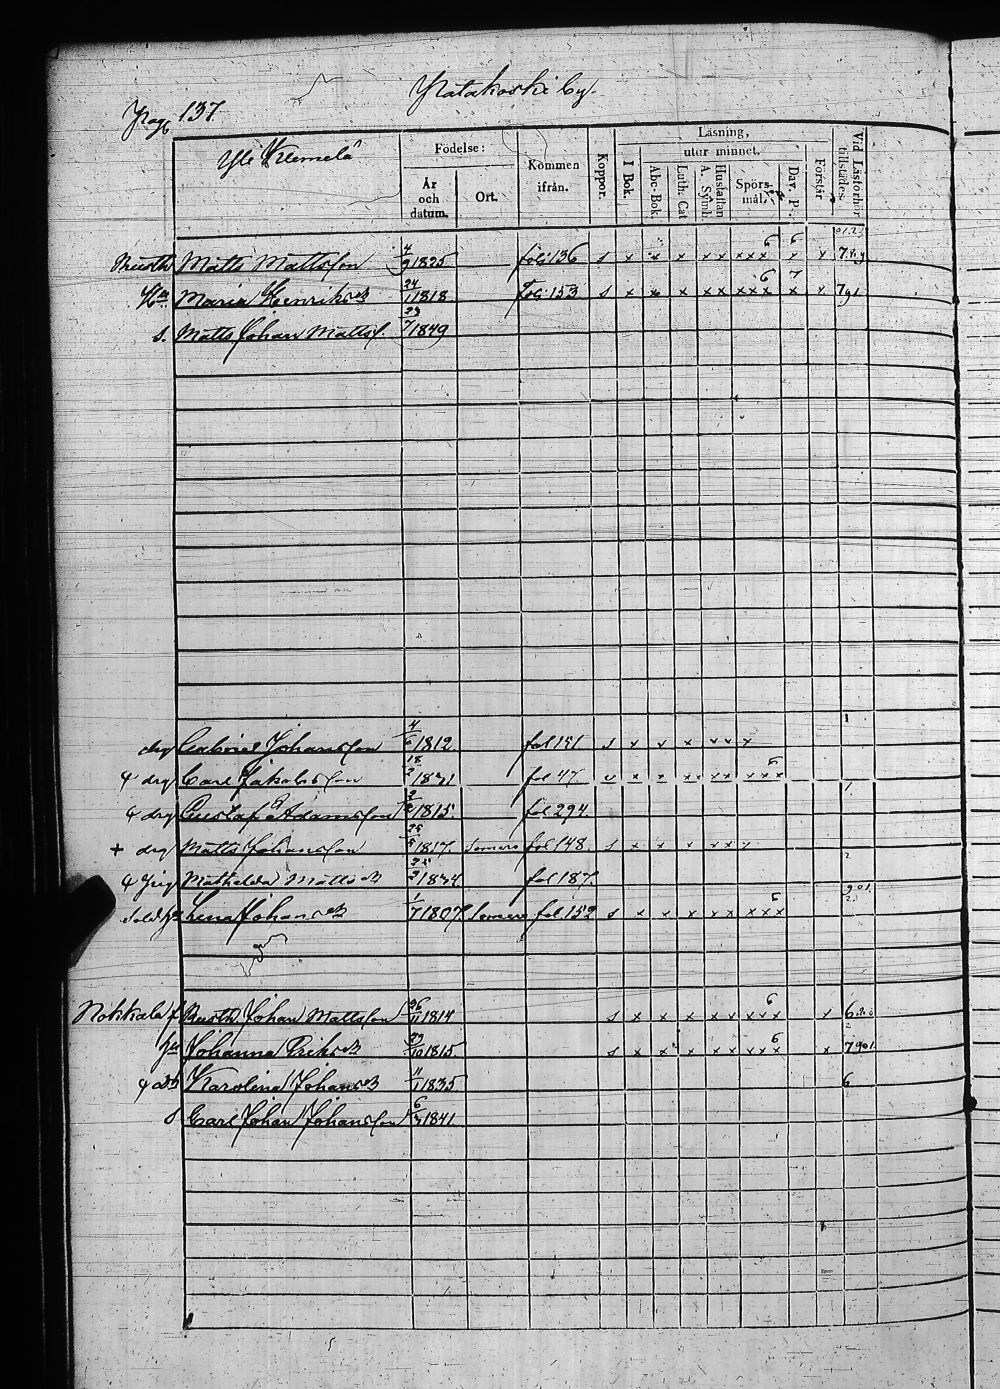 Patakoski by.
Pag 137
Yli Klemelä
Födelse:
År och datum.
Ort.
Kommen ifrån.
Koppor.
Läsning,
I Bok.
utur minnet.
Abc-Bok.
Luth. Cat
Hustaflan A. Symb.
Spörsmål.
Dav. P.
Förstår
Vid Läsförhör tillstädes.
Matts Mattsson 4/9 1825 fol. 136 s x x x xx xxx 6 x 6 x
Maria Henriksd 24/1 1818 Fol. 153 s x x x xx xxx 6 x 7 x
s. Matts Johan Mattss. 29/7 1849
drg Gabriel Johansson 1812 fol 151 s x x x xxx x
drg Carl Jakobsson 18/2 fol 47 v x x xx xx xxx 5
drg Gustaf Adamsson 1815. fol 294.
+ drg Matts Johansson 1817. Somero fol 148. s x x x xx x
Mathilda Mattsd fol 187.
Lena Johansd 1/7 1807 Somero fol 152 s x x x xx xxx 6
Nokkala Johan Mattsson 26/11 1814 s x x x xx xxx 6 x 6
Johanna Eriksd 29/10 1815 s x x x xx xxx 6 x 7901
Karolina Johansd 11/1 1835 6
s Carl Johan Johansson 1841.